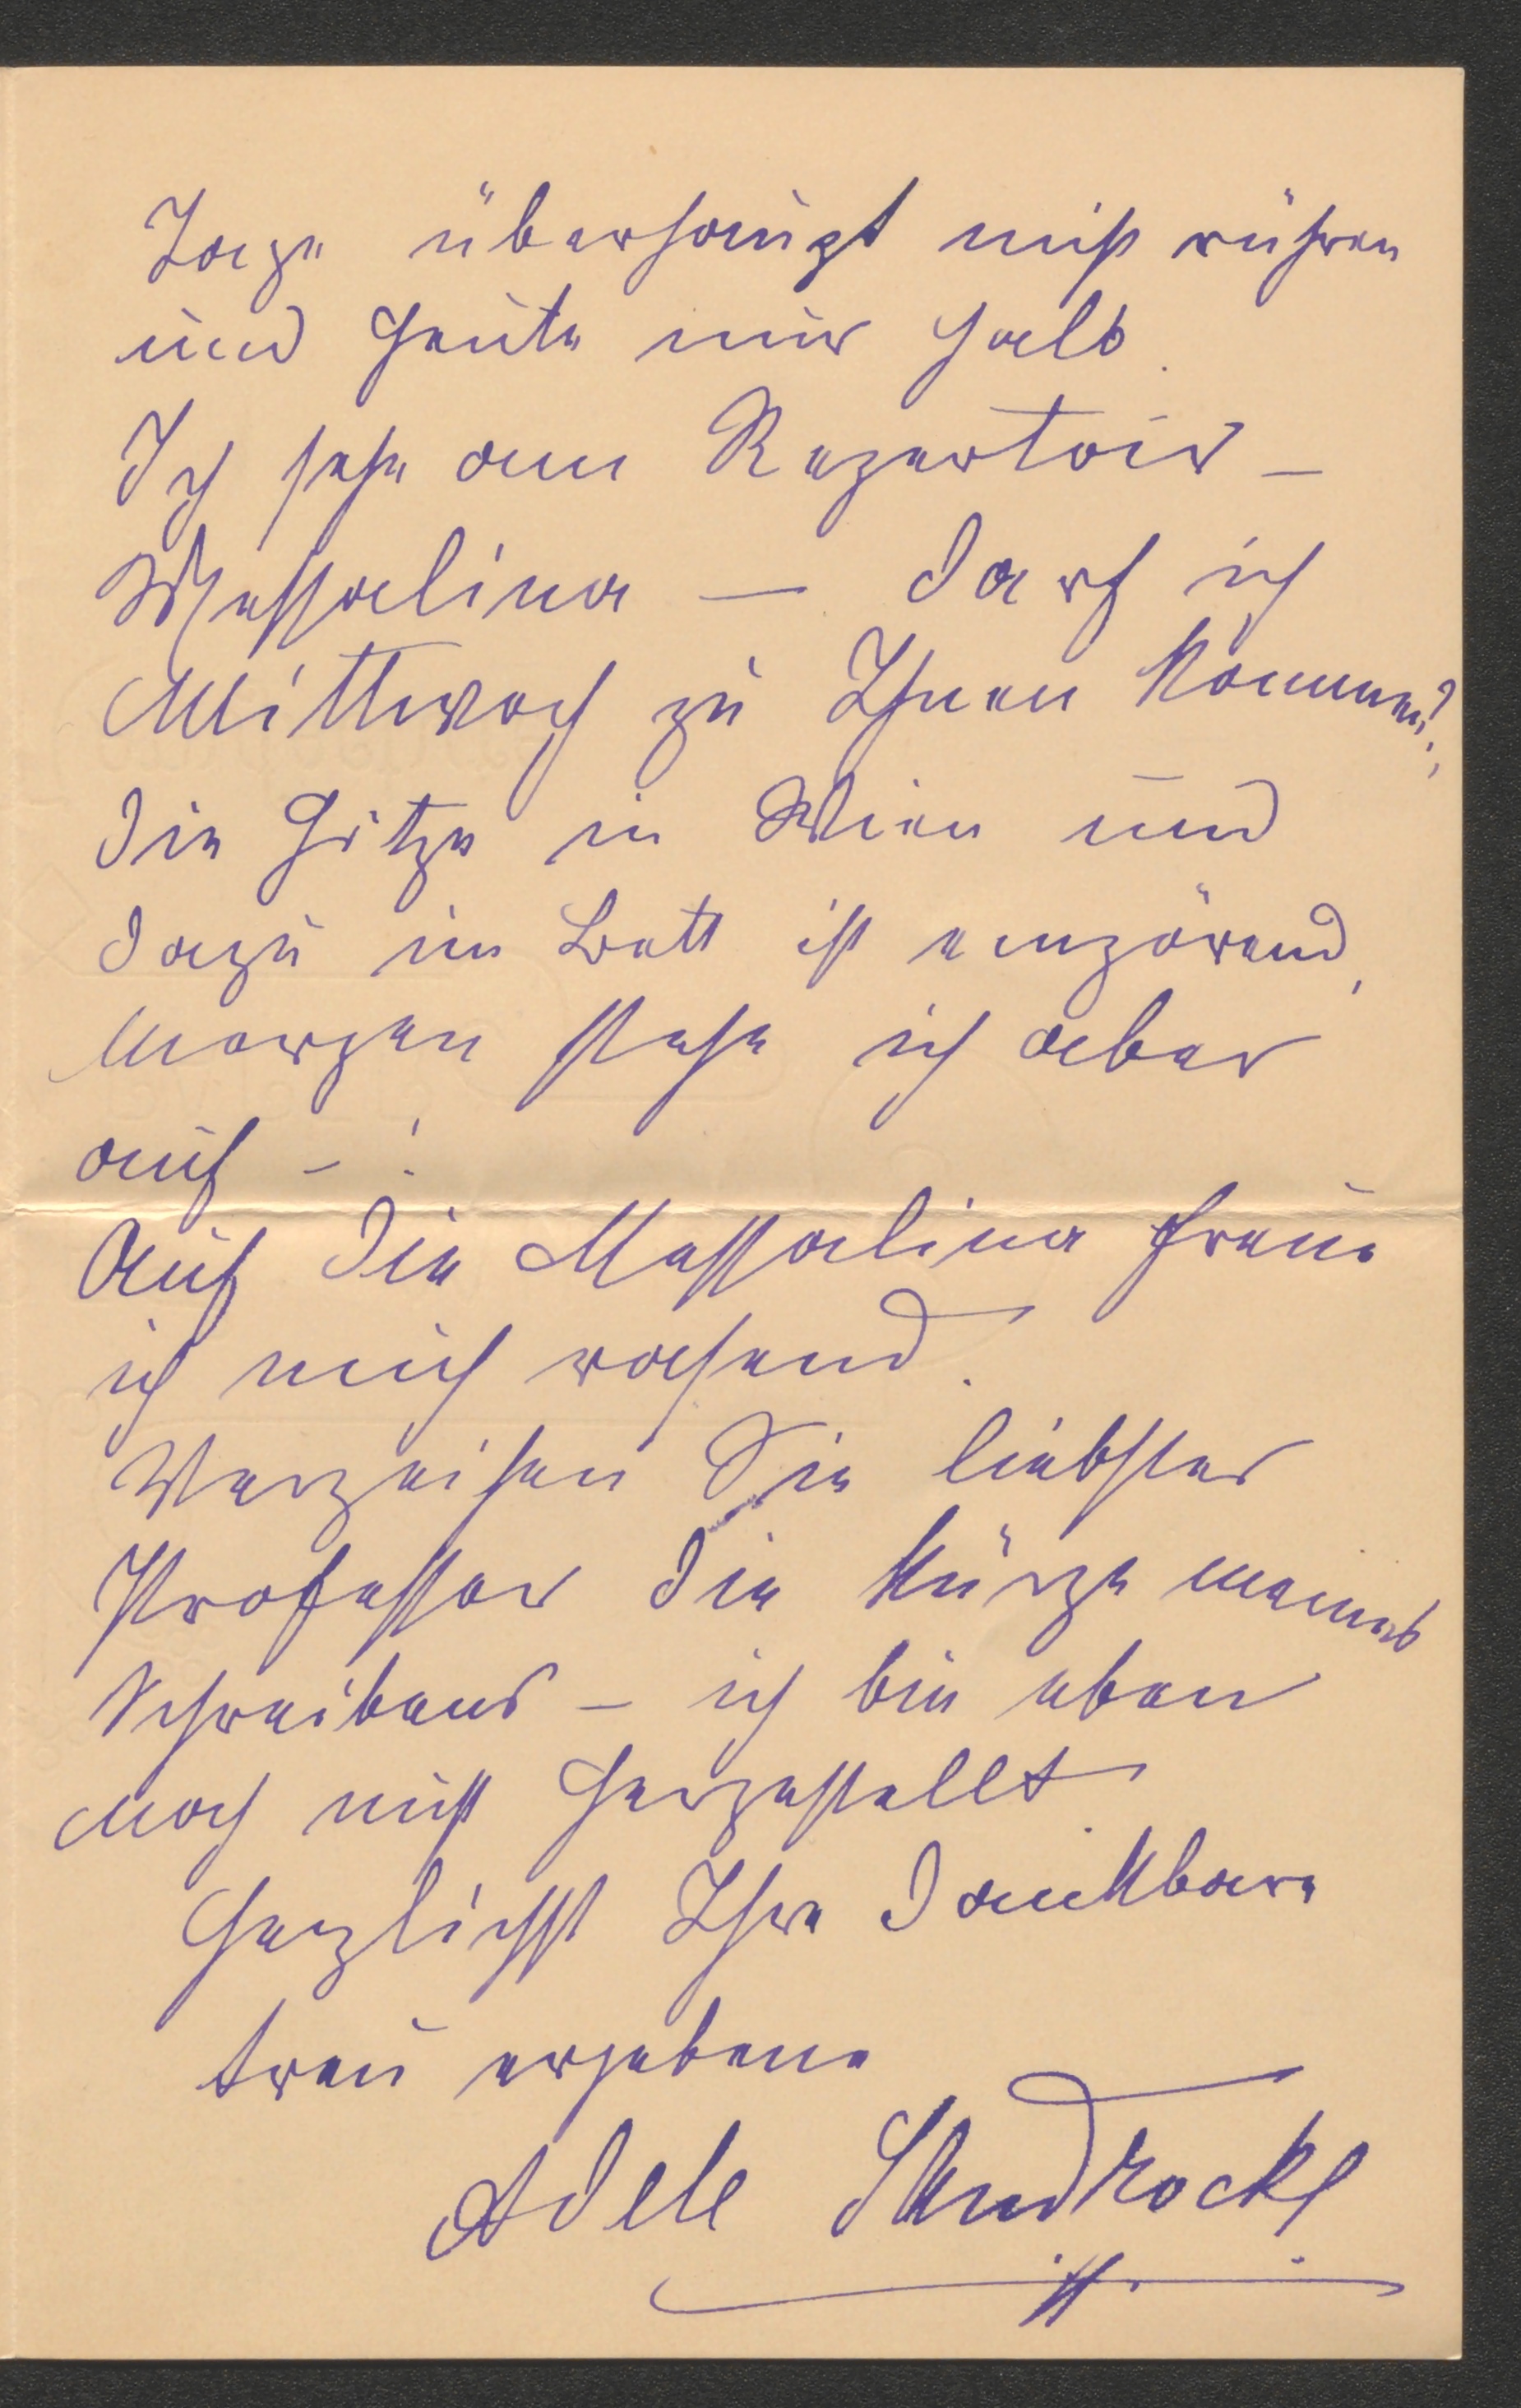 Tage überhaupt nicht rühren
und heute nur halb.
Ich sehe am Repertoir –
Messalina – darf ich
Mittwoch zu Ihnen kommen?,
die Hitze in Wien und
dazu im Bett ist empörend,
morgen stehe ich aber
auf – !
Auf die Messalina freue
ich mich rasend.
Verzeihen Sie liebster
Professor die Kürze meines
Schreibens – ich bin eben
noch nicht hergestellt.
Herzlichst Ihre dankbare
treu ergebene
Adele Sandrock